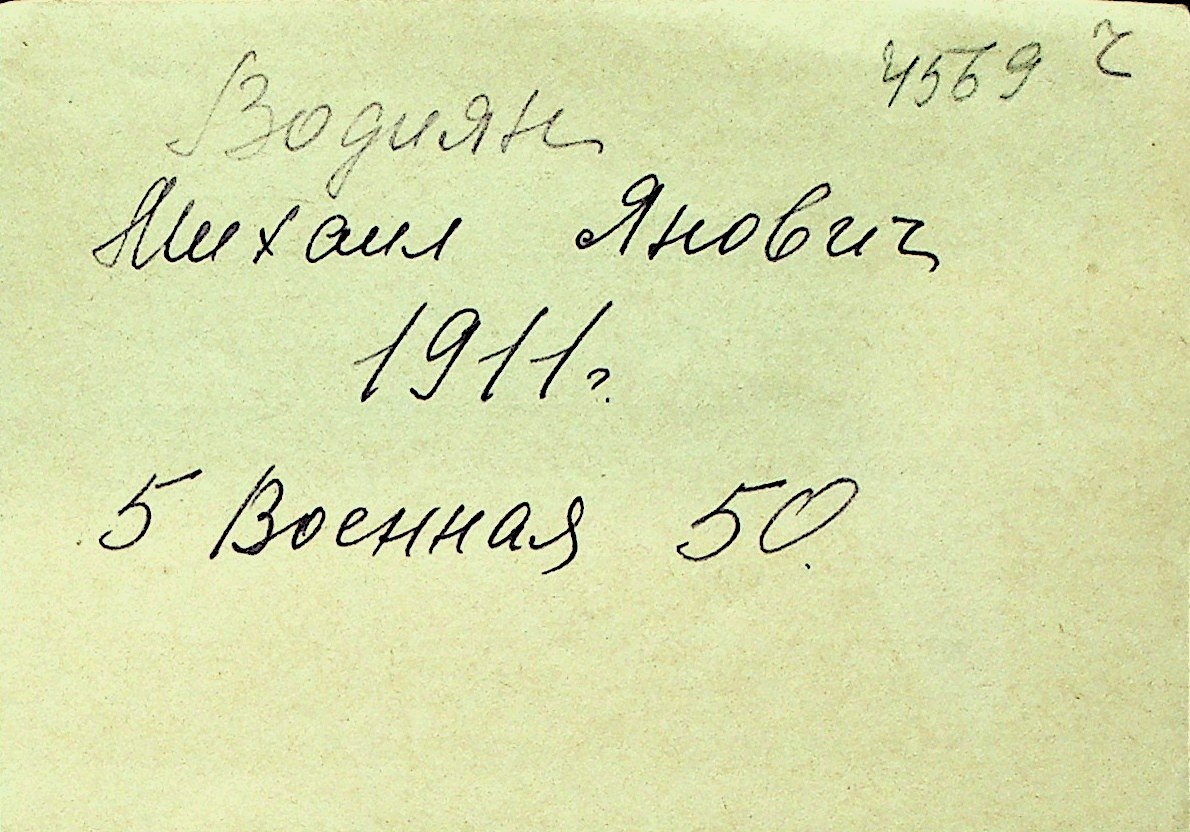 4569 ч
Водиян
Михаил Янович
1911г.
5 Военная 50.